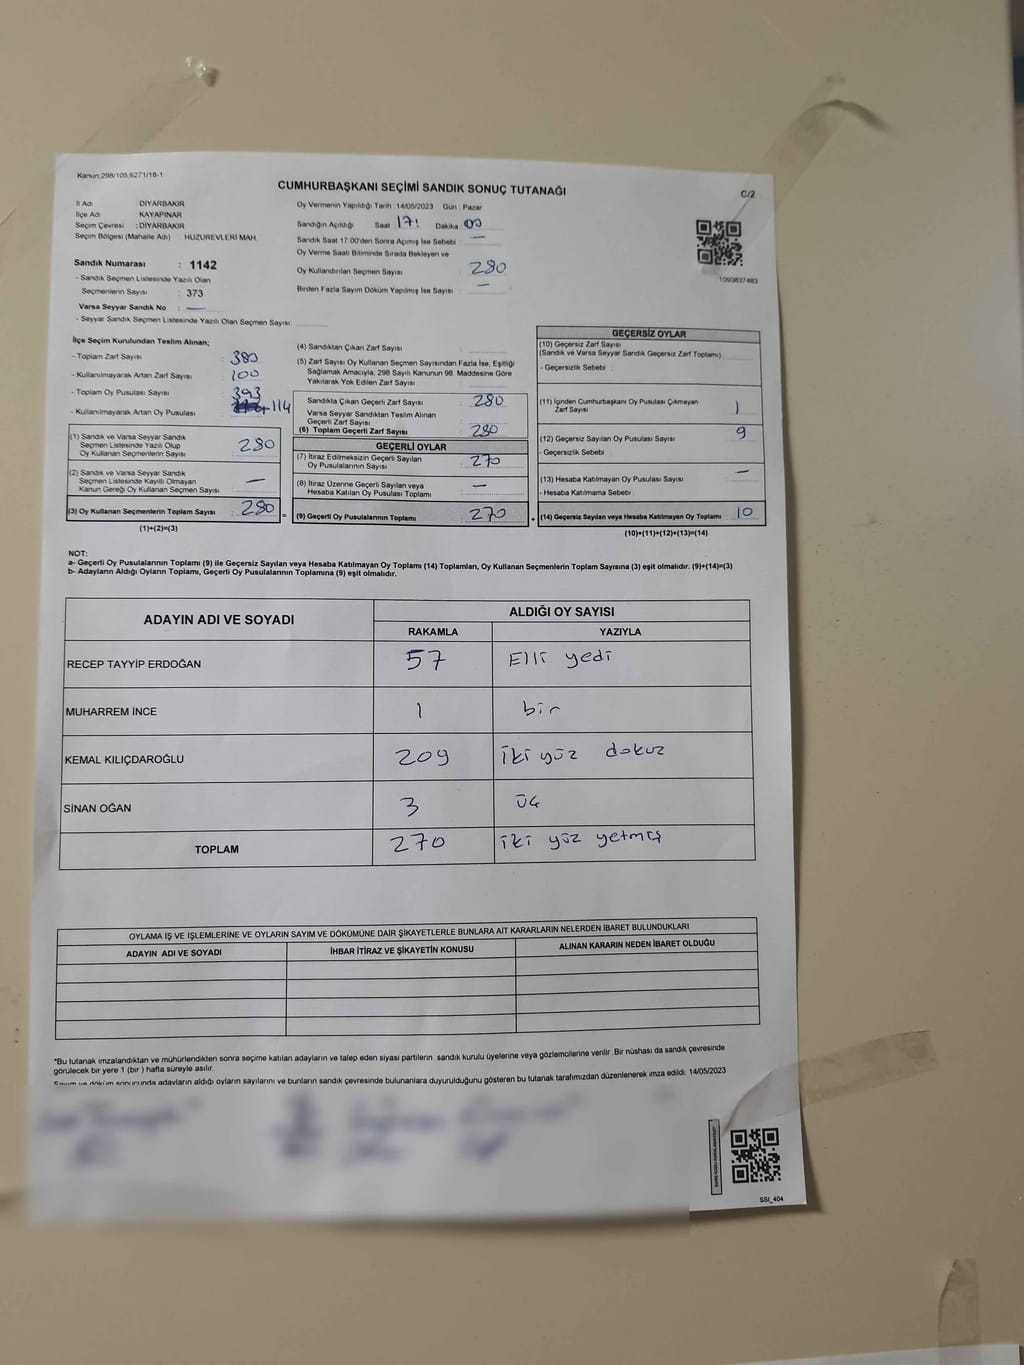 Kanun,298/105,6271/18-1
CUMHURBAŞKANI SEÇİMİ SANDIK SONUÇ TUTANAĞI
C/2
İl Adı DİYARBAKIR
İlçe Adı KAYAPINAR
Seçim Çevresi : DİYARBAKIR
Seçim Bölgesi (Mahalle Adı) HUZUREVLERİ MAH.
Sandık Numarası : 1142
- Sandık Seçmen Listesinde Yazılı Olan
Seçmenlerin Sayısı : 373
Varsa Seyyar Sandık No : —
- Seyyar Sandık Seçmen Listesinde Yazılı Olan Seçmen Sayısı:
Oy Vermenin Yapıldığı Tarih : 14/05/2023 Gün : Pazar
Sandığın Açıldığı Saat 17: Dakika 00
Sandık Saat 17.00'den Sonra Açımış İse Sebebi : —
Oy Verme Saati Bitiminde Sırada Bekleyen ve
Oy Kullandırılan Seçmen Sayısı 280
Birden Fazla Sayım Döküm Yapılmış İse Sayısı : —
1093837483
İlçe Seçim Kurulundan Teslim Alınan;
- Toplam Zarf Sayısı : 380
- Kullanılmayarak Artan Zarf Sayısı : 100
- Toplam Oy Pusulası Sayısı : 393
- Kullanılmayarak Artan Oy Pusulası : 114
(1) Sandık ve Varsa Seyyar Sandık
Seçmen Listesinde Yazılı Olup
Oy Kullanan Seçmenlerin Sayısı : 280
(2) Sandık ve Varsa Seyyar Sandık
Seçmen Listesinde Kayıtlı Olmayan
Kanun Gereği Oy Kullanan Seçmen Sayısı : —
(3) Oy Kullanan Seçmenlerin Toplam Sayısı : 280
(1)+(2)=(3)
=
(4) Sandıktan Çıkan Zarf Sayısı
(5) Zarf Sayısı Oy Kullanan Seçmen Sayısından Fazla İse, Eşitliği
Sağlamak Amacıyla; 298 Sayılı Kanunun 98. Maddesine Göre
Yakılarak Yok Edilen Zarf Sayısı
Sandıkta Çıkan Geçerli Zarf Sayısı : 280
Varsa Seyyar Sandıktan Teslim Alınan
Geçerli Zarf Sayısı
(6) Toplam Geçerli Zarf Sayısı : 280
GEÇERLİ OYLAR
(7) İtiraz Edilmeksizin Geçerli Sayılan
Oy Pusulalarının Sayısı : 270
(8) İtiraz Üzerine Geçerli Sayılan veya
Hesaba Katılan Oy Pusulası Toplamı : —
(9) Geçerli Oy Pusulalarının Toplamı : 270
+
GEÇERSİZ OYLAR
(10) Geçersiz Zarf Sayısı
(Sandık ve Varsa Seyyar Sandık Geçersiz Zarf Toplamı) :
- Geçersizlik Sebebi :
(11) İçinden Cumhurbaşkanı Oy Pusulası Çıkmayan
Zarf Sayısı : 1
(12) Geçersiz Sayılan Oy Pusulası Sayısı : 9
- Geçersizlik Sebebi :
(13) Hesaba Katılmayan Oy Pusulası Sayısı : —
- Hesaba Katılmama Sebebi :
(14) Geçersiz Sayılan veya Hesaba Katılmayan Oy Toplamı : 10
(10)+(11)+(12)+(13)=(14)
NOT:
a- Geçerli Oy Pusulalarının Toplamı (9) ile Geçersiz Sayılan veya Hesaba Katılmayan Oy Toplamı (14) Toplamları, Oy Kullanan Seçmenlerin Toplam Sayısına (3) eşit olmalıdır. (9)+(14)=(3)
b- Adayların Aldığı Oyların Toplamı, Geçerli Oy Pusulalarının Toplamına (9) eşit olmalıdır.
ADAYIN ADI VE SOYADI
ALDIĞI OY SAYISI
RAKAMLA YAZIYLA
RECEP TAYYİP ERDOĞAN 57 Elli yedi
MUHARREM İNCE 1 bir
KEMAL KILIÇDAROĞLU 209 İki yüz dokuz
SİNAN OĞAN 3 üç
TOPLAM 270 iki yüz yetmiş
OYLAMA İŞ VE İŞLEMLERİNE VE OYLARIN SAYIM VE DÖKÜMÜNE DAİR ŞİKAYETLERLE BUNLARA AİT KARARLARIN NELERDEN İBARET BULUNDUKLARI
ADAYIN ADI VE SOYADI İHBAR İTİRAZ VE ŞİKAYETİN KONUSU ALINAN KARARIN NEDEN İBARET OLDUĞU
*Bu tutanak imzalandıktan ve mühürlendikten sonra seçime katılan adayların ve talep eden siyasi partilerin sandık kurulu üyelerine veya gözlemcilerine verilir .Bir nüshası da sandık çevresinde
görülecek bir yere 1 (bir ) hafta süreyle asılır.
Sayım ve döküm sonucunda adayların aldığı oyların sayılarını ve bunların sandık çevresinde bulunanlara duyurulduğunu gösteren bu tutanak tarafımızdan düzenlenerek imza edildi. 14/05/2023
SSI_404